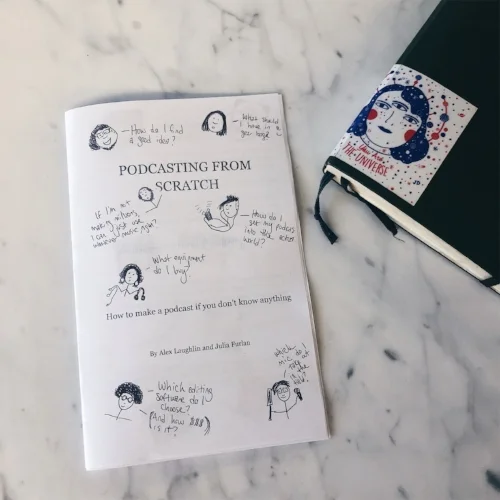 How do I find
a good idea?
PODCASTING FROM
SCRATCH
If I'm not
making millions,
I can just use
whatever music right?
How do I
get my podcast
into the
world?
What equipment
do I buy?
How to make a podcast if you don't know anything
By Alex Laughlin and Julia Furlan
Which editing
Software do I
choose?
(And how $$$
is it?)
which
mic do I
You Are
THE UNIVERSE